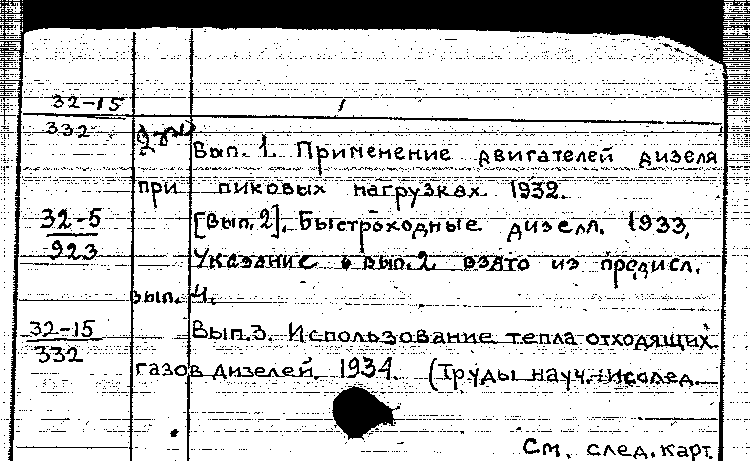 32-15
332
Вып. 1. Применение двигателей дизеля
при пиковых нагрузках. 1932.
32-5 [Вып. 2]. Быстроходные дизели. 1933.
923 Указание о вып. 2 взято из предисл.
вып. 4.
32-15 Вып. 3. Использование тепла отходящих
332 газов дизелей. 1934. (Труды науч.-исслед.
См. след. карт.